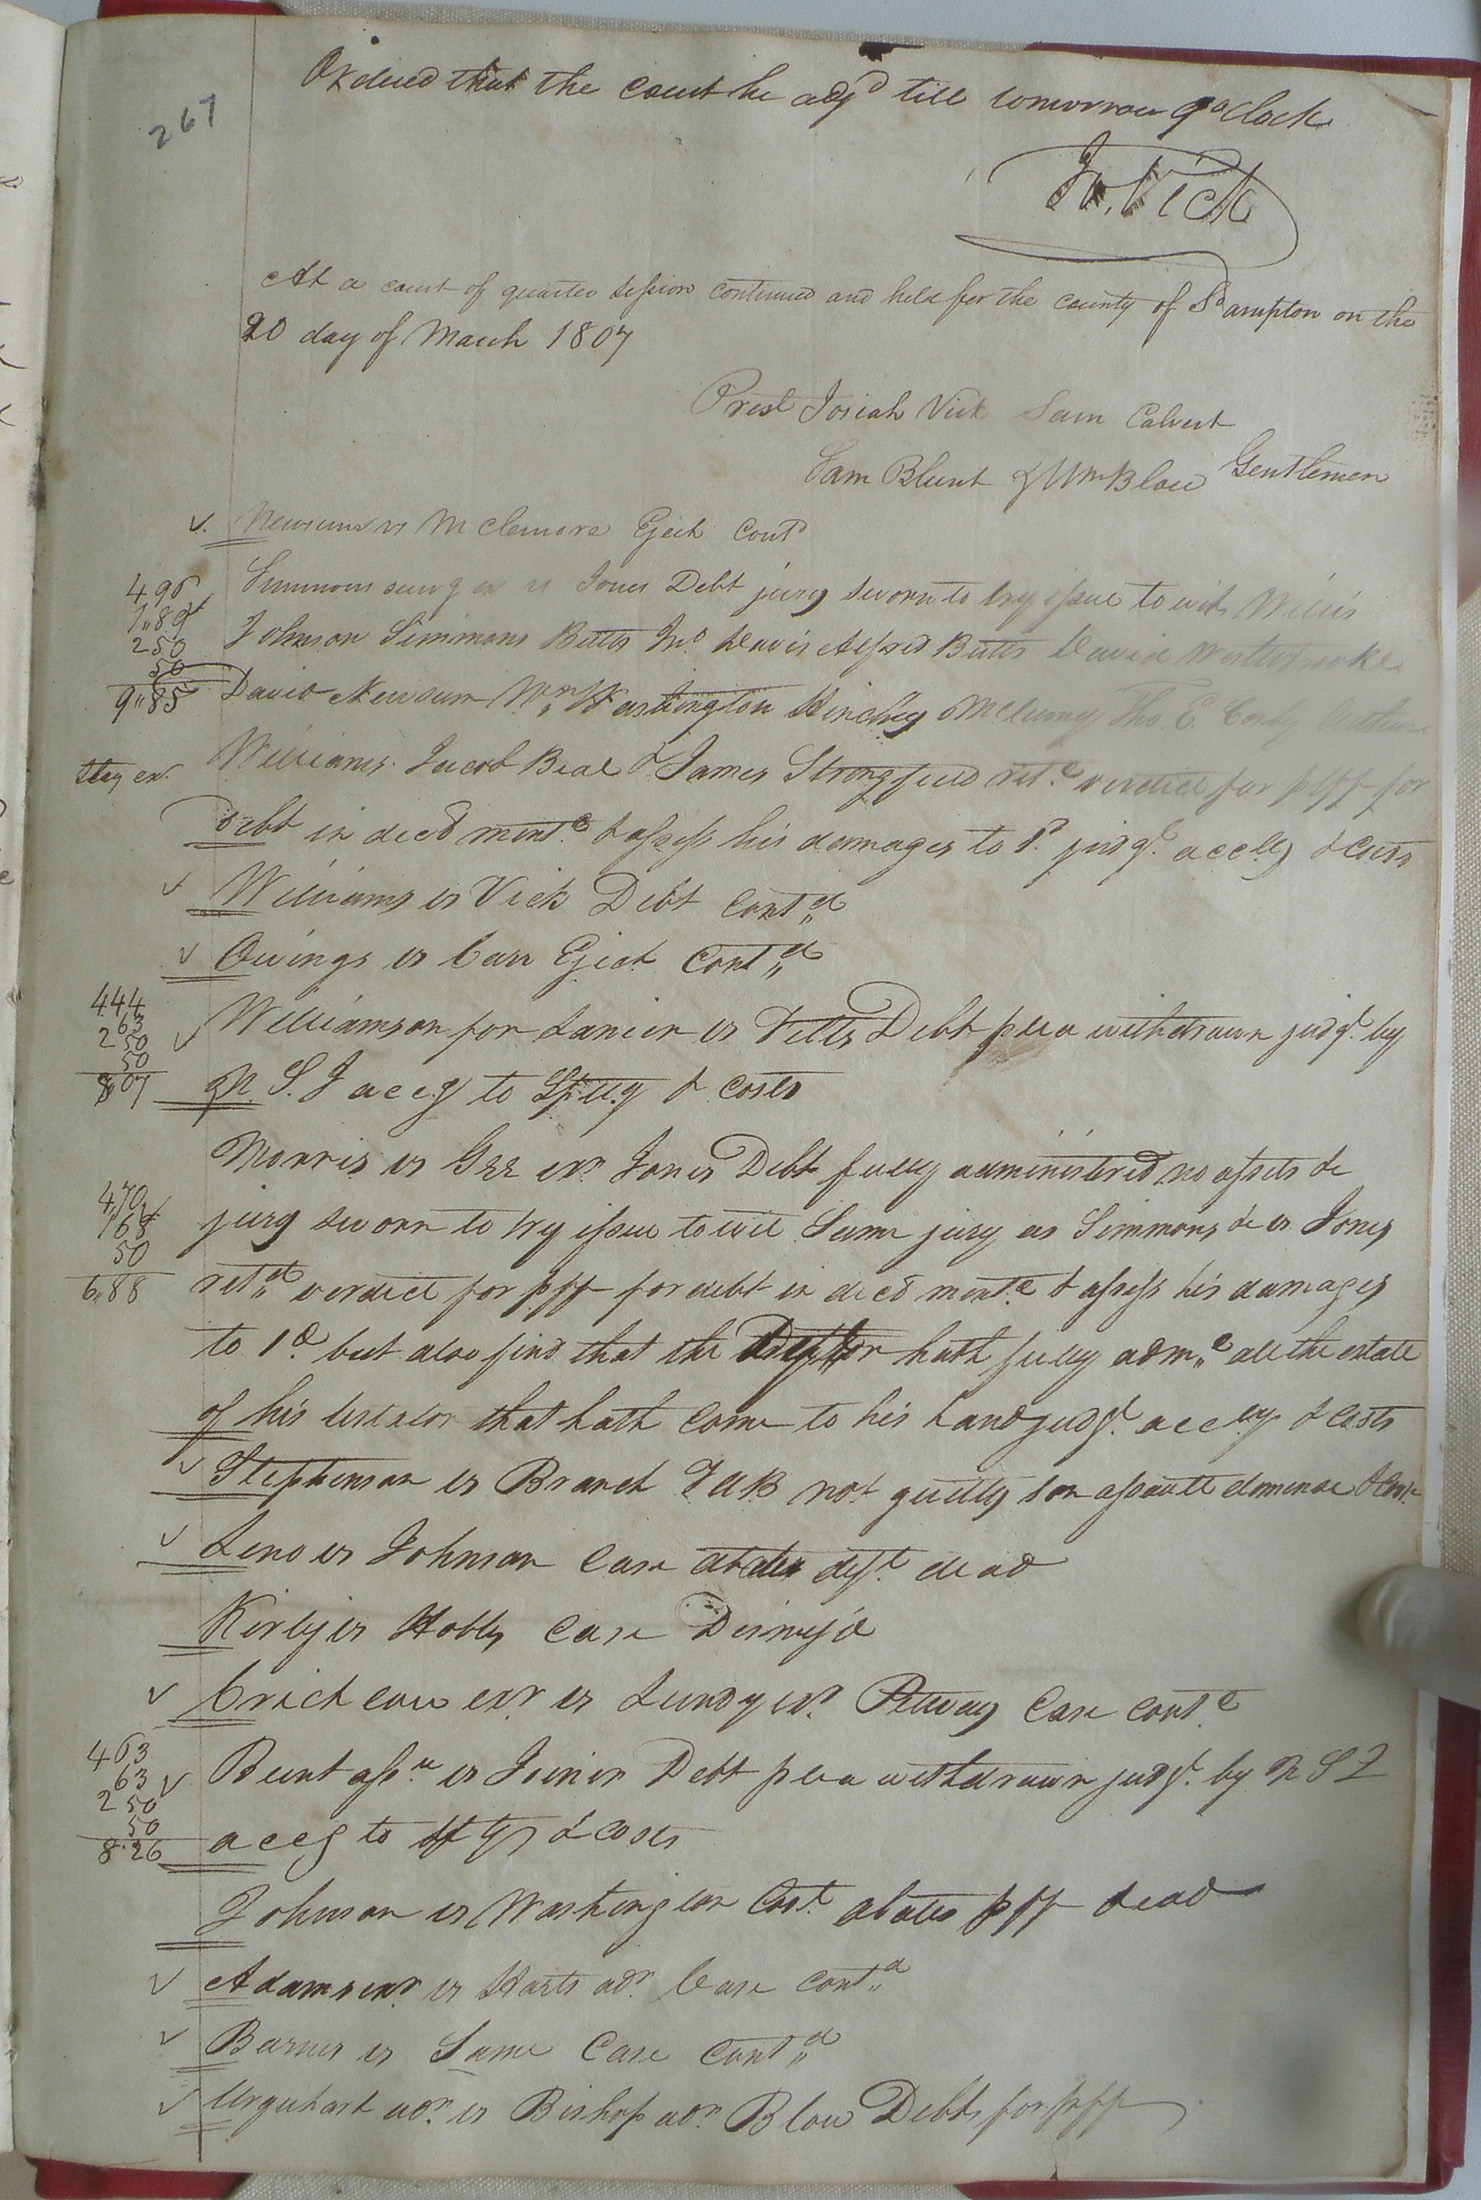 Ordered that the court be adjd till tomorrow 9 oClock
267
Jo. Vick
At a court of quarter session continued and held for the county of Sd ampton on the
20 day of March 1807
Prest Josiah Vick Sam Calvert
Sam Blunt & Wm Blow Gentlemen
Newsum vs McLemore Eject Contd
Simmons surv g ex vs Jones Debt jury sworn to try issue to wit Willis
496
1"89
250
50
9"85
Johnson Simmons Butts Jno Davis Alfred Butts David Westbrooke
David Newsum Wm Washington Hinchey McLemy Tho. E.
Williams Jacob Beal & James Stringfield retd verdict for plff for
Stay ex.
debt in decl mentd & assess his damages to 1d judgt accly & costs
Williams vs Vick Debt Contd
Owings vs Carr Eject Contd
444
263
250
50
8"07
Williamson for Lanier vs Vells Debt plea withdrawn judgt by
N. S. J accg to & costs
Morris vs Gee exr Jones Debt fully administered no assets &c
470
168
50
6"88
jury sworn to try issue to wit Same jury as Simmons &c vs Jones
retd verdict for plff for debt in decl mentd & assess his damages
to 1d but also find that the hath fully admd all the estate
of his testator that hath come to his hand judgt accly & costs
Stephenson vs Branch TAB not guilty son assault demense &
Leno vs Johnson Case abates deft dead
Kirby vs Hobbs Case Dismsd
Crichlow exr vs Lundy exr Petway Case contd
463
63
250
50
8"26
Bunt asse vs Joiner Debt plea withdrawn judgt by N S J
accg to & costs
Johnson vs Washington Cast abates plff dead
Adams exr vs Harts adr Case contd
Barnes vs Same Case contd
Urquhart adr vs Bishop adr Blow Debt for plff